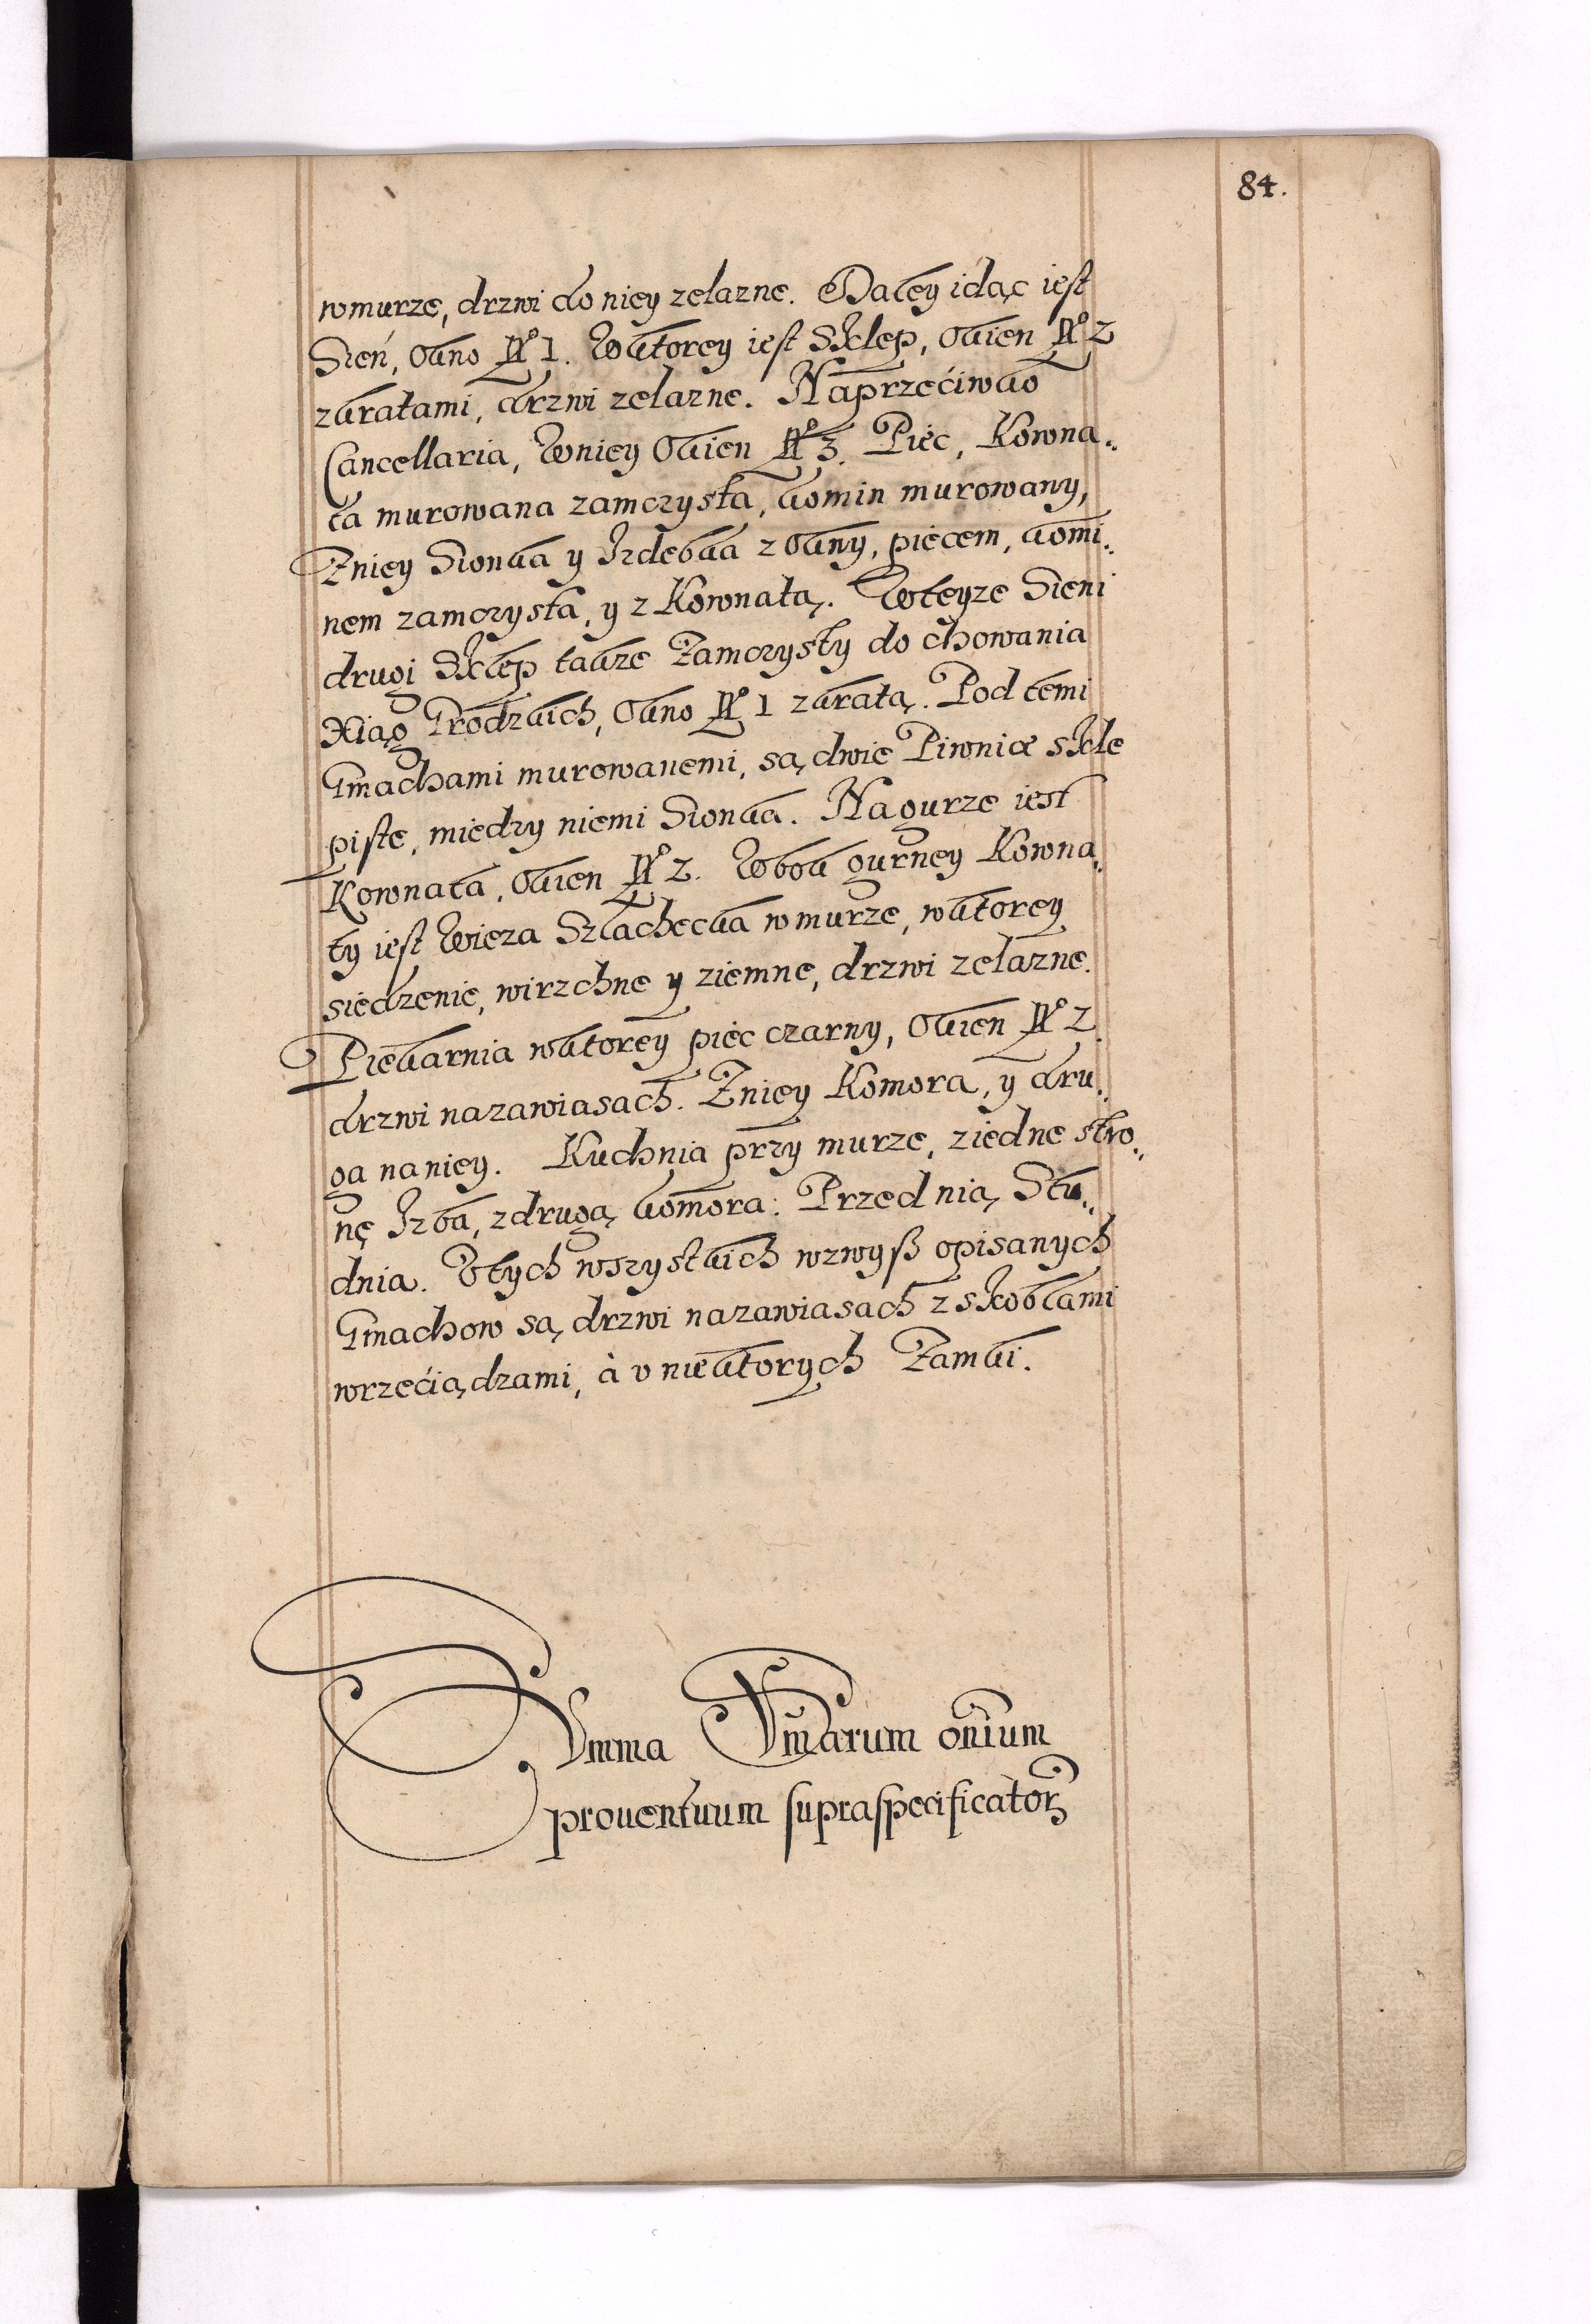 84.
wmurze, drzwi do niey zelazne. Daley idąc iest
Sień, Okno No 1. Wktorey iest Sklep, Okien No 2
zkratami, drzwi zelazne. Naprzećiwko
Cancellaria, Wniey Okien No 3. Piec, Kowna„
ta murowana zamczysta, komin murowany,
Zniey Sionka y Izdebka z Okny, piecem, komi„
nem zamczysta, y z Kownatą. Wteyze Sieni
drugi Sklep takze Zamczysty do chowania
Xiąg Grodzkich, Okno No 1 zkratą. Pod temi
Gmachami murowanemi, są dwie Piwnice skle
piste, miedzy niemi Sionka. Nagurze iest
Kownata, Okien No 2. Wbok gurney Kowna„
ty iest Wieza Szlachecka wmurze, wktorey
siedzenie, wirzchne y ziemne, drzwi zelazne.
Piekarnia wktorey piec czarny, Okien No 2.
drzwi nazawiasach. Zniey Komora, y dru„
ga naniey. Kuchnia przy murze, ziedne stro„
nę Izba, zdrugą komora: Przed nią Stu„
dnia. Vtych wszystkich wzwyß opisanych
Gmachow są drzwi nazawiasach z skoblami
wrzećiądzami, à v niektorych Zamki.
Summa Sum̃arum om̃ium
prouentuum supraspecificatorꝝ